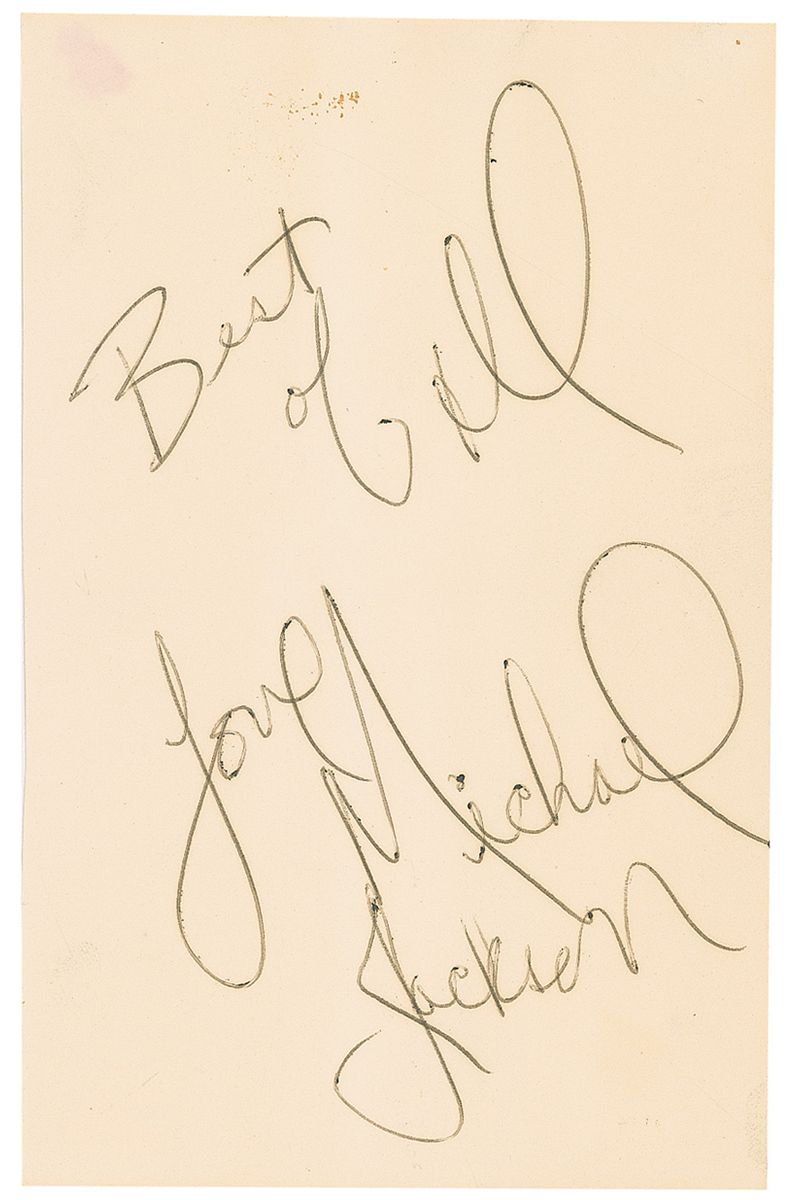 Best
of all
Love
Michael
Jackson